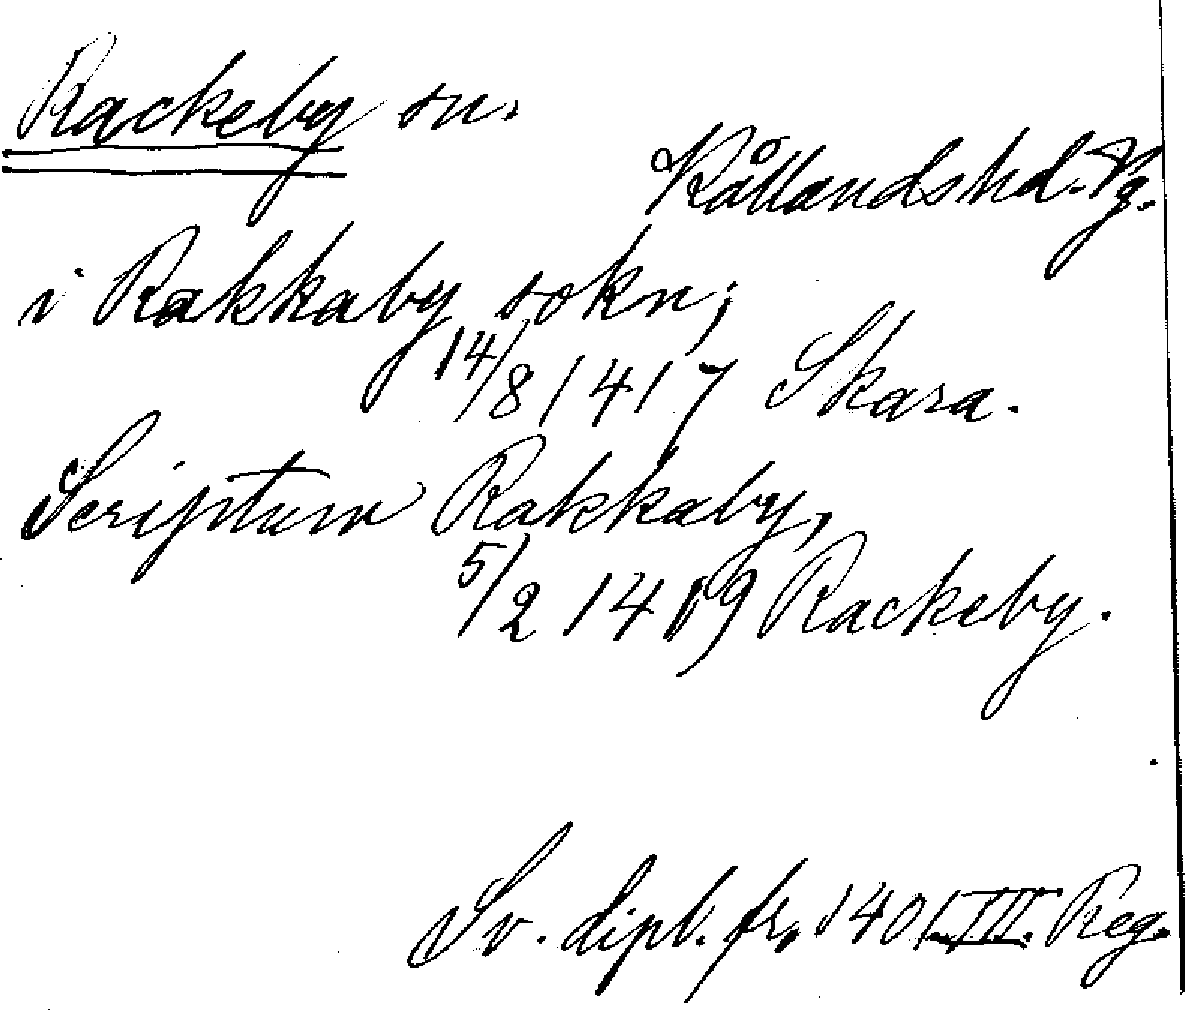 Rackeby sn.
Kållandshd. Vg.
i Rakkaby sokn;
14/8 1417 Skara.
Scriptum Rakkaby,
5/2 1419 Rackeby.
Sv. dipl. fr. 1401 III. Reg.